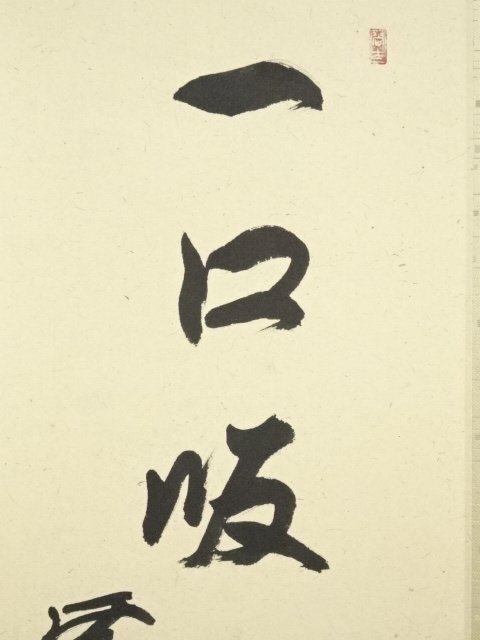 一口吸